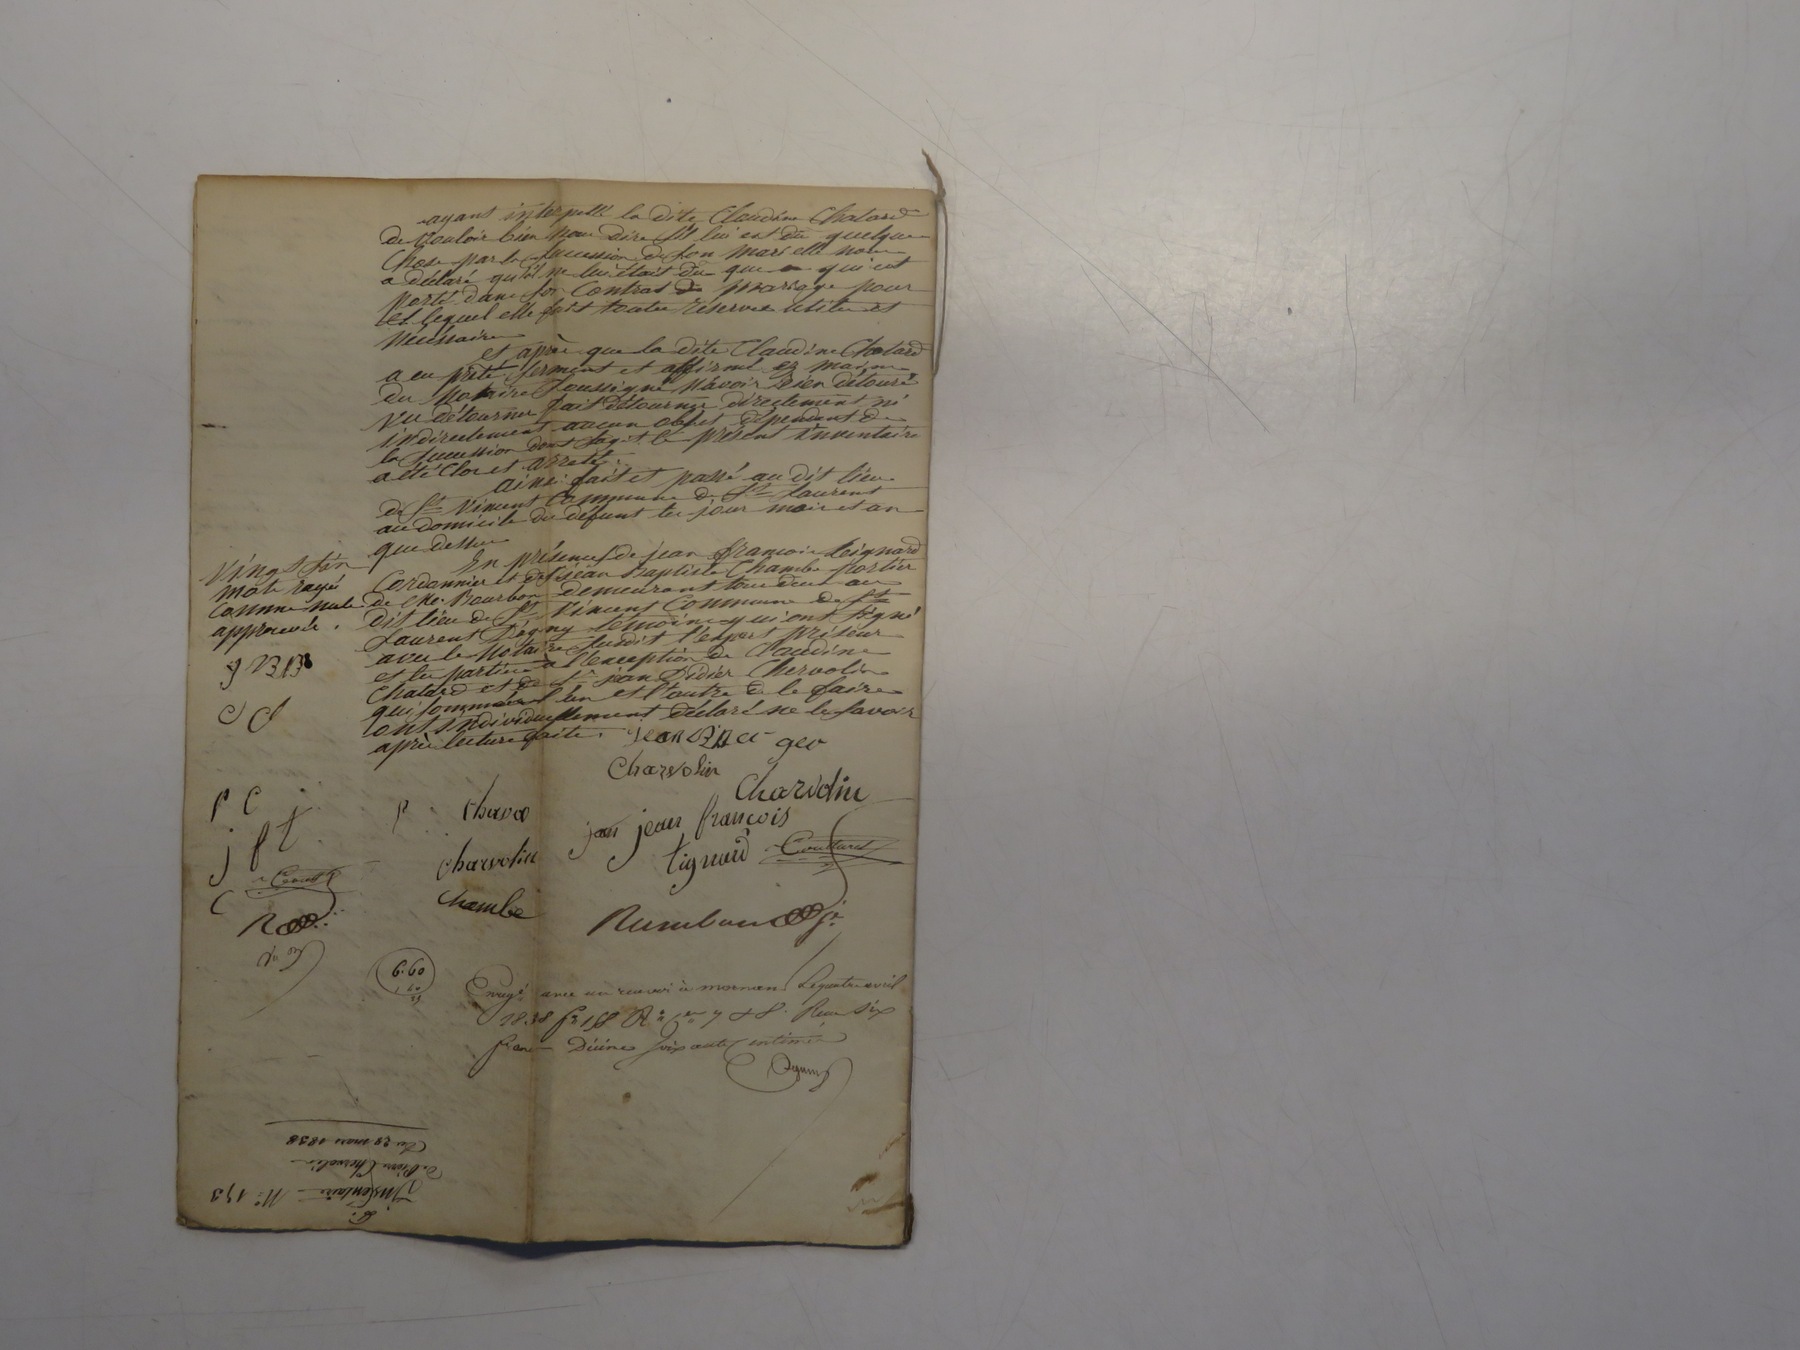 ayant interpellé la dite Claudine Chatard
de vouloir bien nous dire s'il lui est dû quelque
chose par la succession de son mari elle nous
a déclaré qu'il ne lui était dû que ce qui est
porté dans son contrat de mariage pour
lequel elle fait toutes réserves utiles et
nécessaires
et après que la dite Claudine Chatard
a eu prêté serment et affirmé ez mains
du notaire soussigné n'avoir rien détourné
vu détourner fait détourner directement ni
indirectement aucun objet dépendant de
la succession dont s'agit le présent inventaire
a été clos et arrêté.
ainsi fait et passé au dit lieu
de St Vincent Commune de St Laurent
au domicile du défunt les jour mois et an
que dessus
En présence de jean françois tignard
Cordonnier et de jean Baptiste Chambe portier
de Bourbon demeurant tous deux au
dit lieu de St Vincent Commune de St
Laurent D'agny témoins qui ont signé
avec le notaire susdit l'expert priseur
et les parties à l'exception de Claudine
Chatard et de Sr jean Didier Chervolin
qui sommés l'un et l'autre de le faire
ont individuellement déclaré ne le savoir
après lecture faite.
mots rayés
comme nuls
approuvés.
Charvolin
Charvolin
jean françois
tignard
charvolin
chambe
P C
j f t
C
6.60
Enregé avec un renvoi à mornant Le quatre avril
1838 fo 158 Ro Ces 7 & 8. Reçu six
francs Décime soixante centimes
Inventaire No 173
de Pierre Chervolin
Du 29 mars 1838